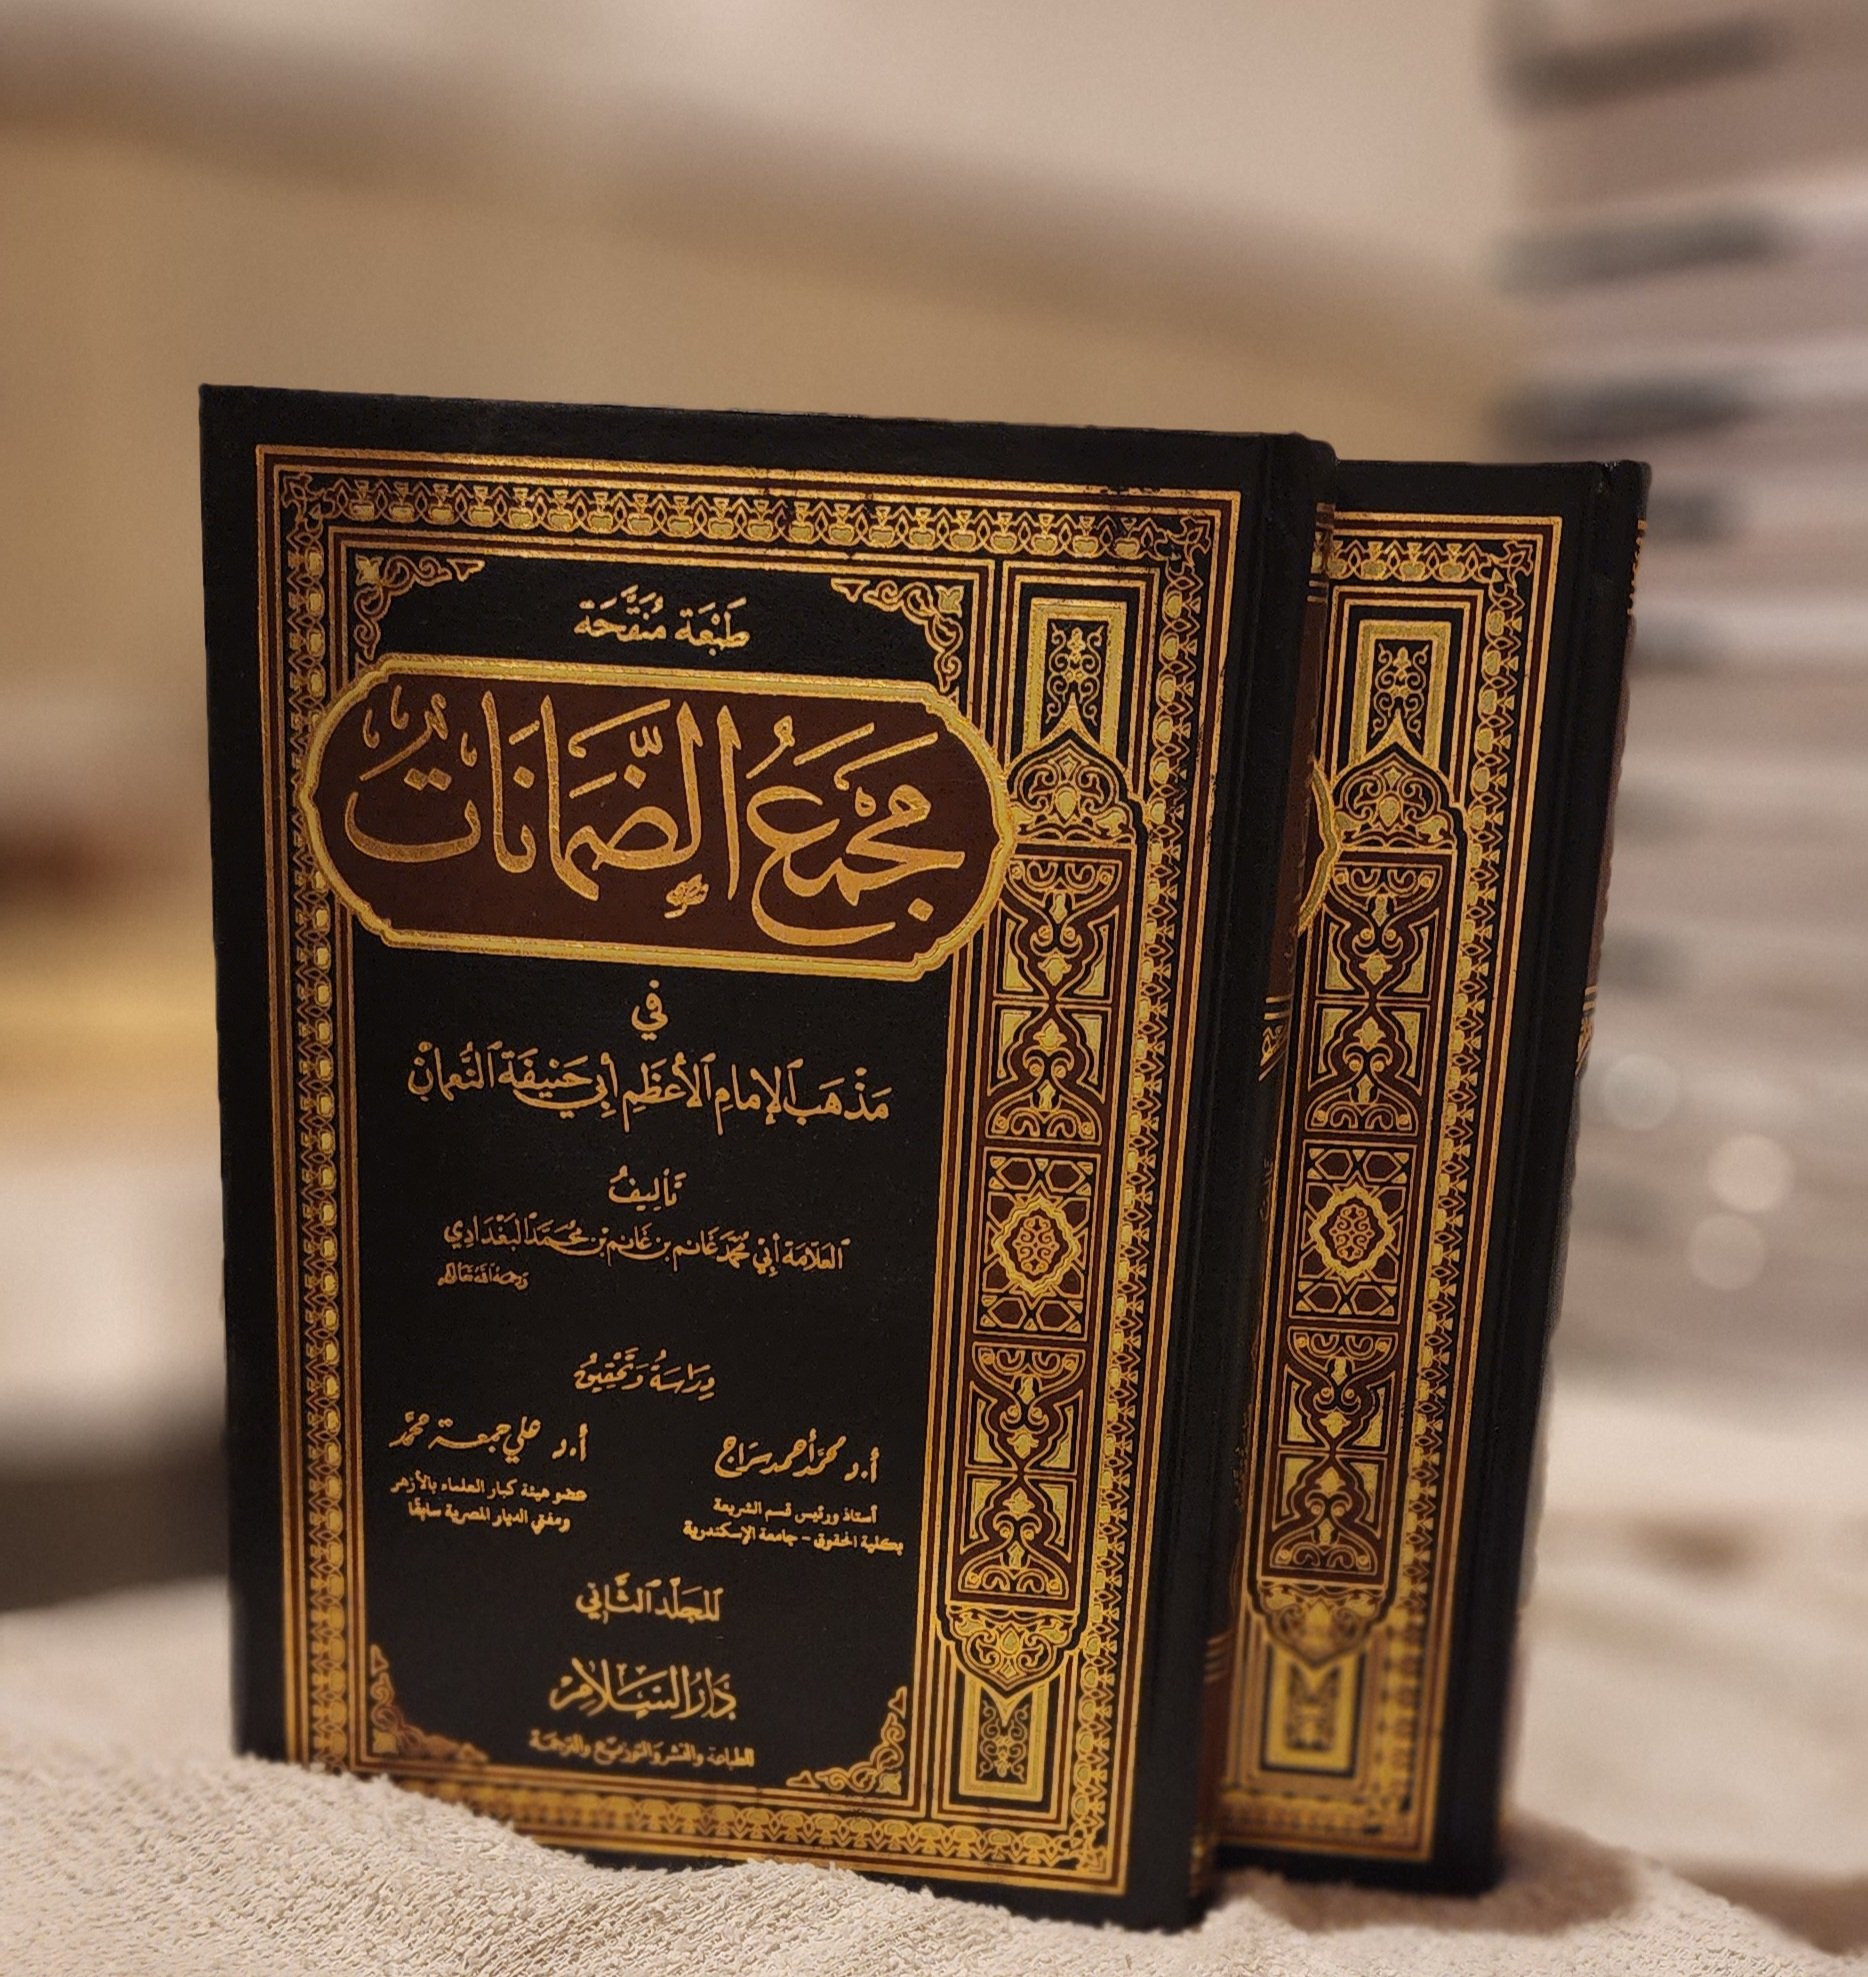 طَبْعَة مُنَقَّحَة
مَجْمَعُ الضَّمَانَاتُ
في
مَذْهَب الإمامِ الأعظَمِ أبِي حَنِيفَة النُّعمان
تأليفُ
العلّامَة أبي محمَّد غَانم بن غَانم بْن محُمَد البَغْدَادِي
رحمه الله تعالى
دِرَاسَةُ وَتَحْقِيقُ
أ.د محمَّد أحمد سرَاج
أستاذ ورئيس قسم الشريعة
بكلية الحقوق - جامعة الإسكندرية
أ.د علي جمعة محمَّد
عضو هيئة كبار العلماء بالأزهر
ومفتي الديار المصرية سابقًا
المجَلّد الثَّاني
دَارُ السَّلَامِ
للطباعة والنشر والتوزيع والترجمة